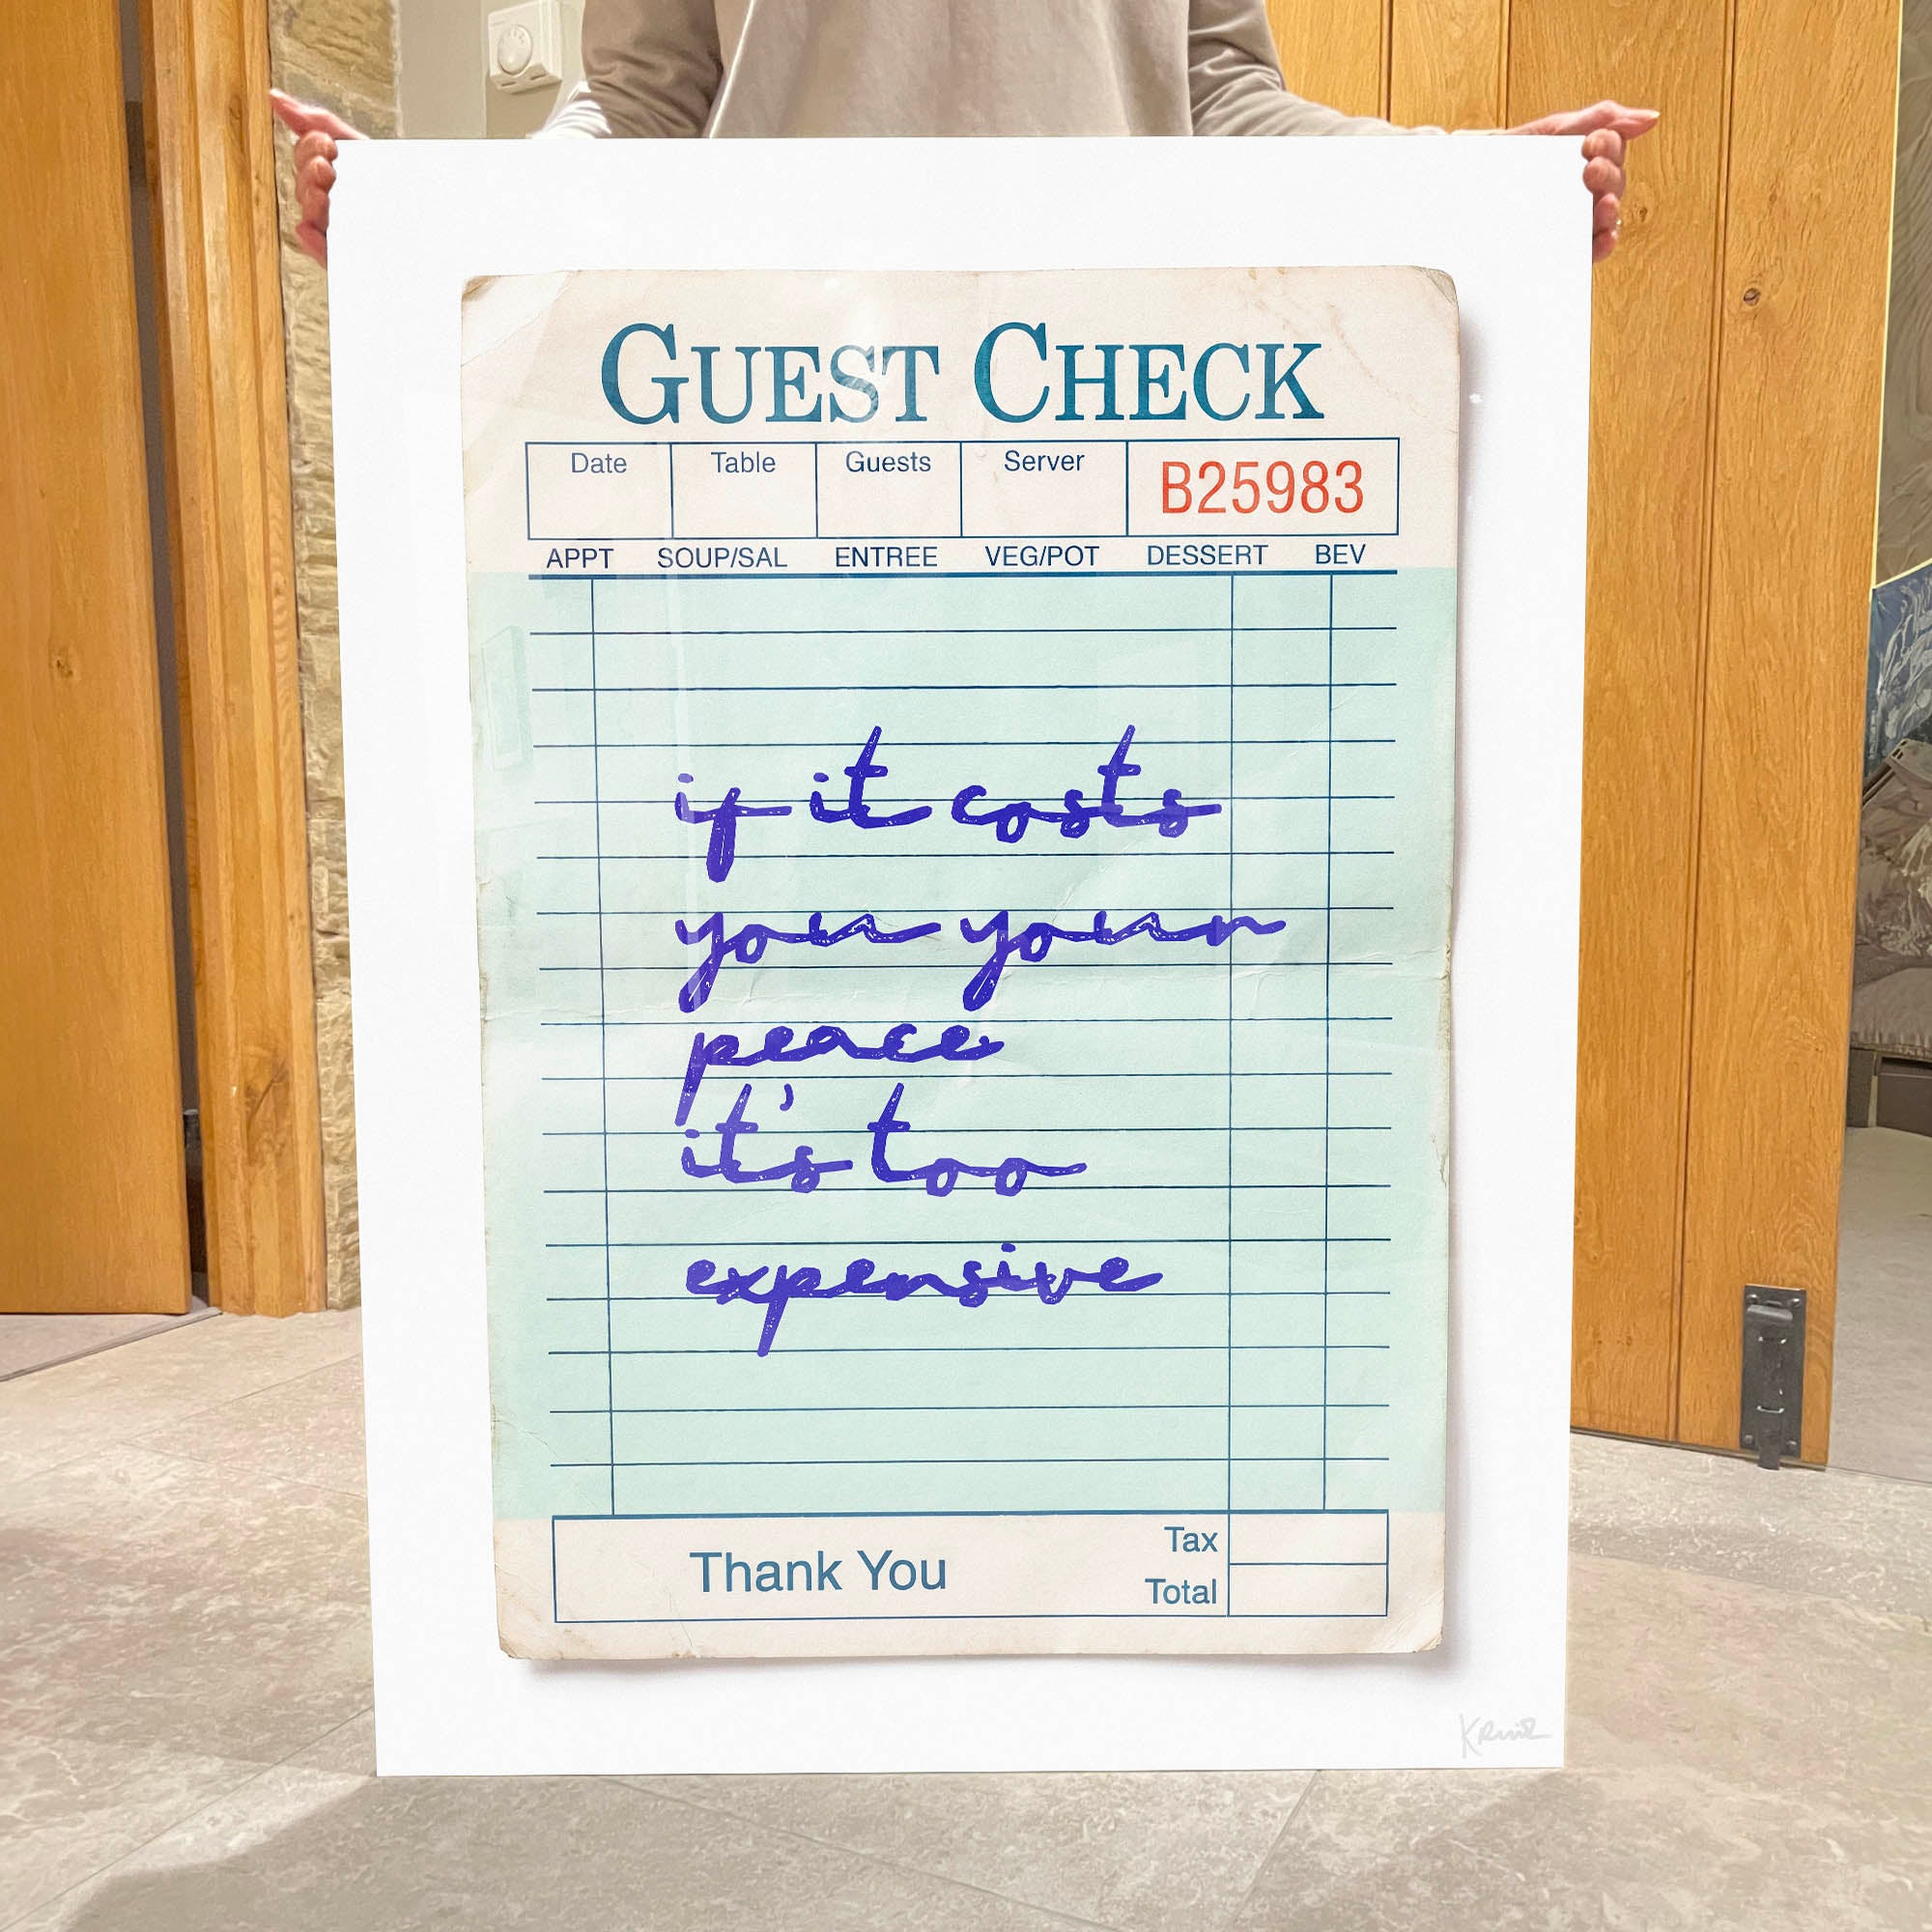 GUEST CHECK
Date Table Guests Server B25983
APPT SOUP/SAL ENTREE VEG/POT DESSERT BEV
if it costs
you your
peace
it's too
expensive
Thank You
Tax
Total